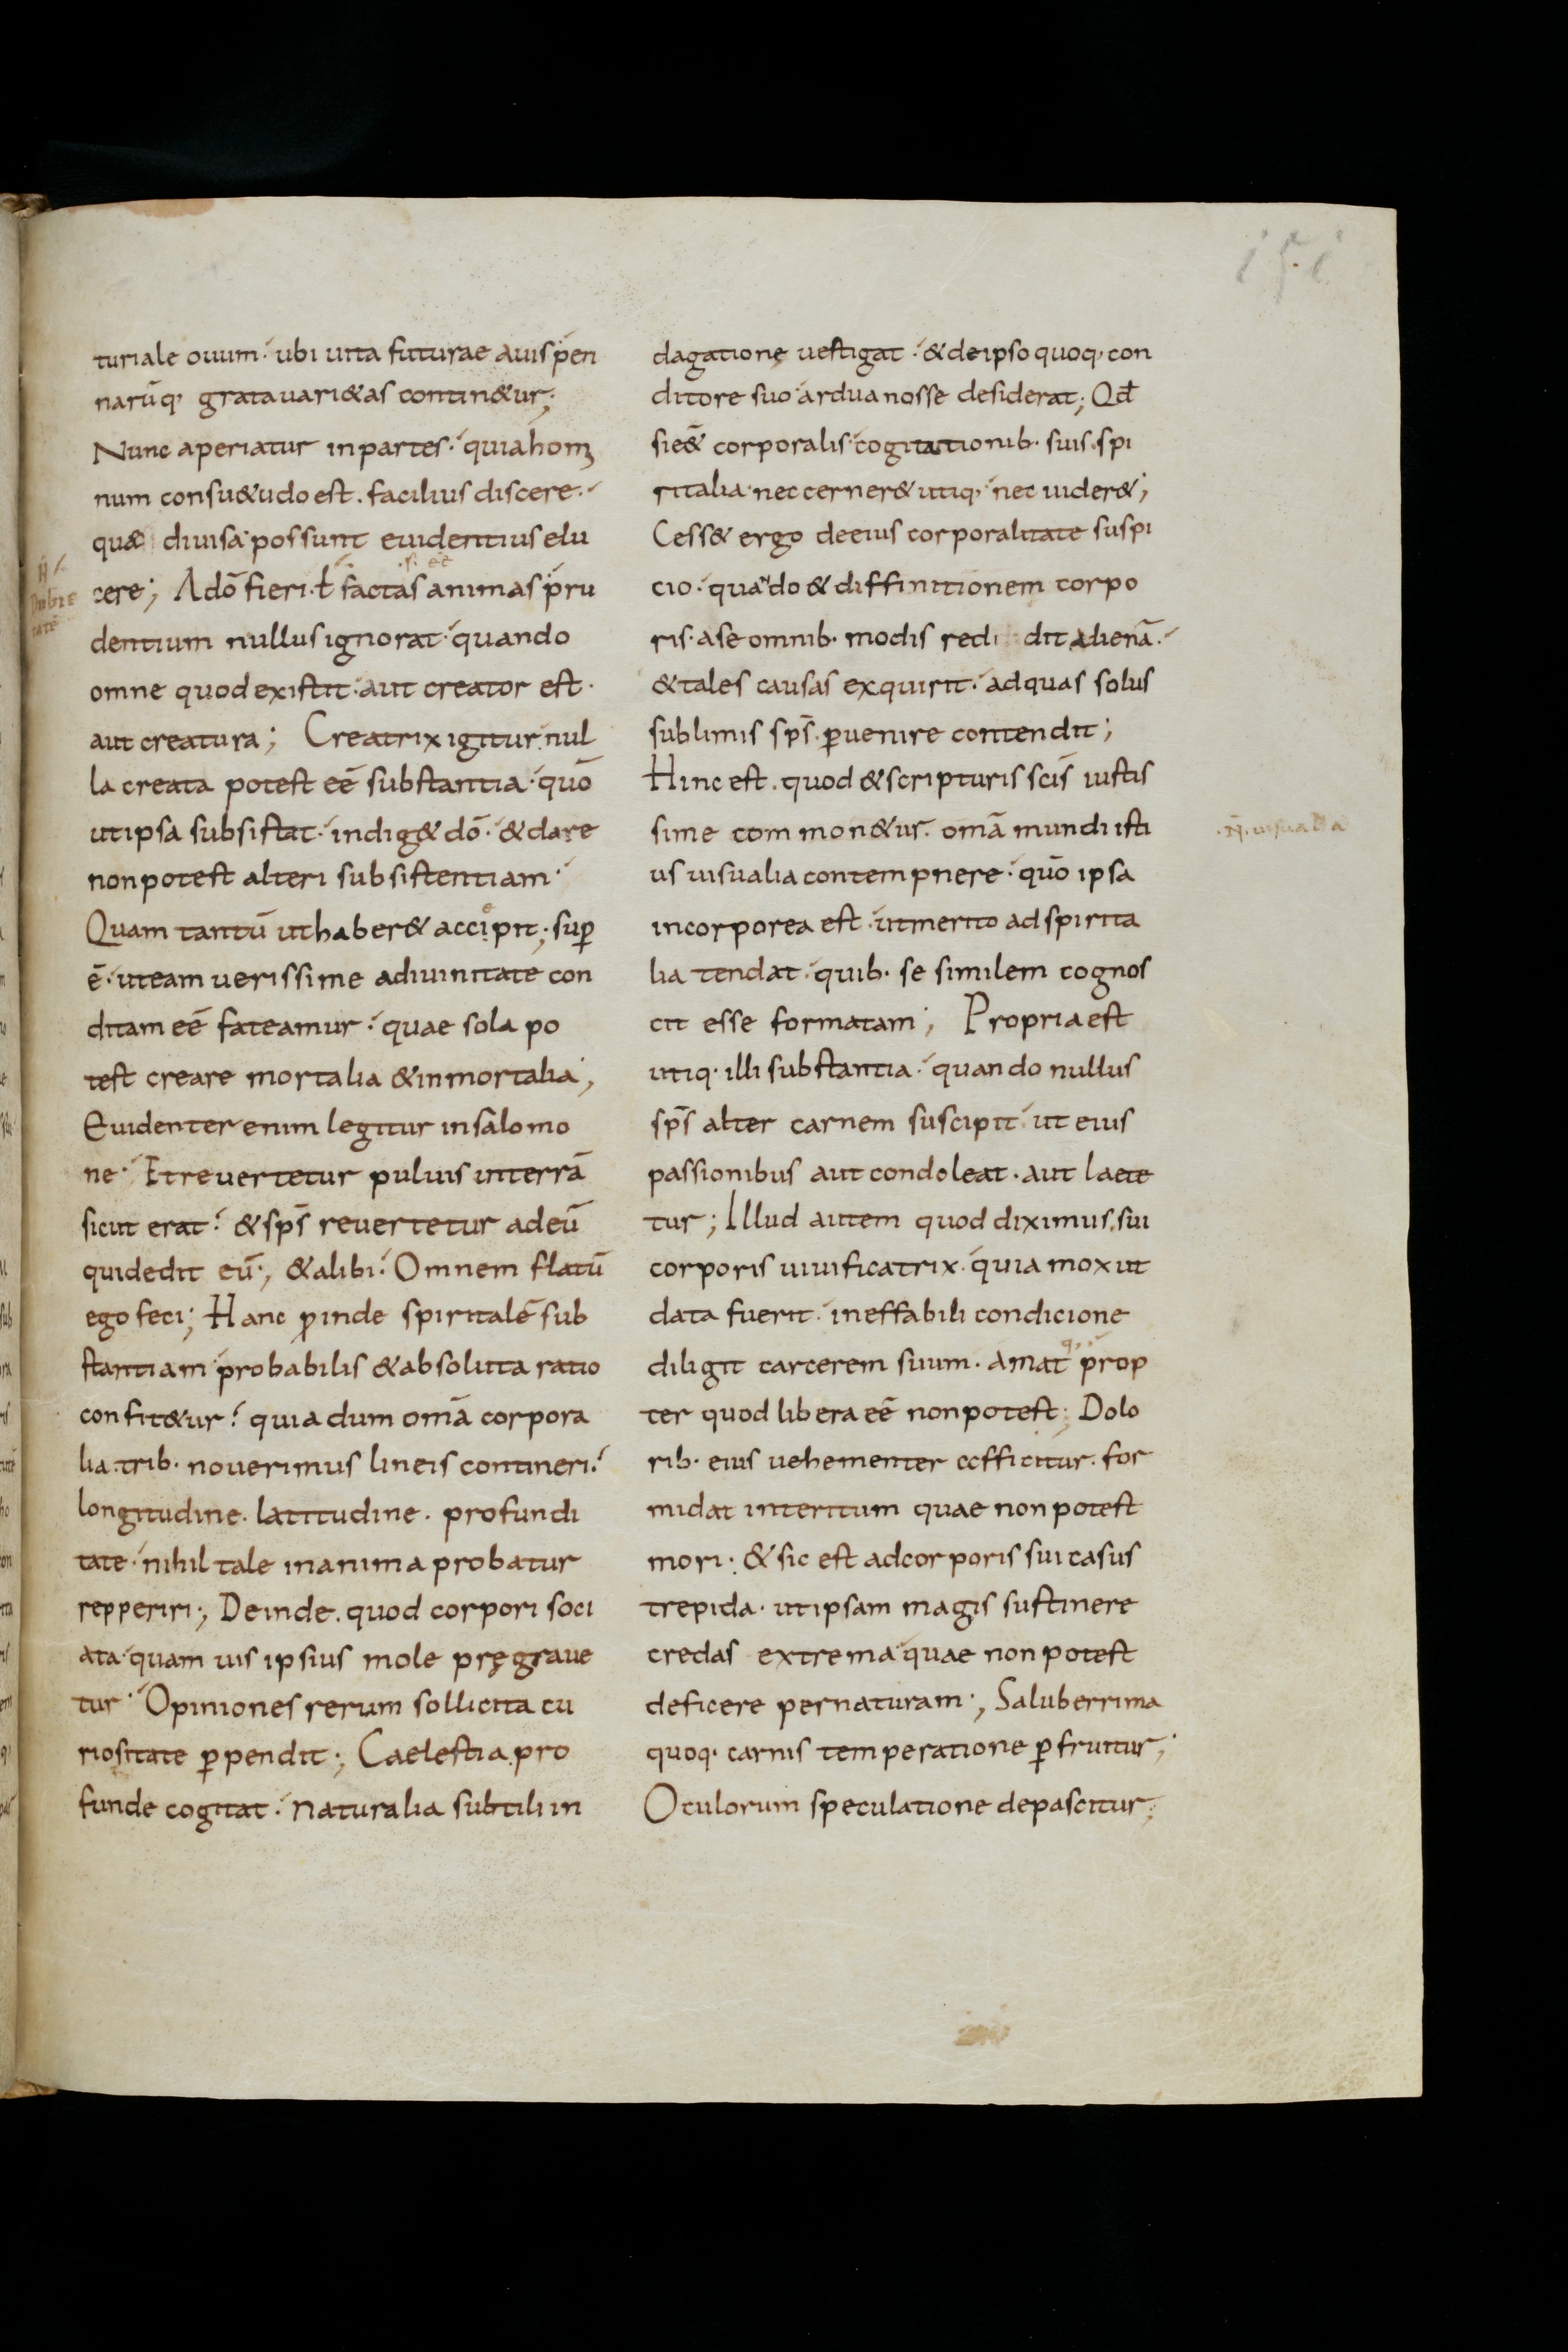 151
turiale ouum · ubi uita futurae auis pen
narūq· grata uari&as contin&ur;
Nunc aperiatur in partes · quia homi
num consu&udo est . facilius discere ·
quae diuisa possunt euidentius elu
cere ; A dō fieri · ł factas animas pru
dentium nullus ignorat · quando
omne quod existit · aut creator est ·
aut creatura ; Creatrix igitur nul
la creata potest eē substantia · quō
ut ipsa subsistat · indig& dō · & dare
non potest alteri subsistentiam ·
Quam tantū ut haber& accipit ; suꝑ
ē · ut eam uerissime a diuinitate con
ditam eē fateamur · quae sola po
test creare mortalia & inmortalia ;
Euidenter enim legitur in salomo
ne · Et reuertetur puluis in terrā
sicut erat · & sp̄s reuertetur ad eū
qui dedit eū ; & alibi · Omnem flatū
ego feci ; Hanc ꝓinde spiritalē sub
stantiam probabilis & absoluta ratio
confit&ur · quia dum omā corpora
lia trib· nouerimus lineis contineri ·
longitudine . latitudine . profundi
tate · nihil tale in anima probatur
repperiri ; Deinde . quod corpori soci
ata · quam uis ipsius mole pręgraue
tur · Opiniones rerum sollicita cu
riositate ꝑpendit ; Caelestia pro
funde cogitat · naturalia subtili in
dagatione uestigat · & de ipso quoq· con
ditore suo ardua nosse desiderat ; Qđ
si e&̄ corporalis · cogitationib· suis · spi
ritalia · nec cerner& utiq· nec uider& ;
Cess& ergo de eius corporalitate suspi
cio · quando & diffinitionem corpo
ris · a se omnib· modis redi dit alienā ·
& tales causas exquirit · ad quas solus
sublimis sp̄s ꝑuenire contendit ;
Hinc est . quod & scripturis sc̄is iustis
sime common&ur · omā mundi isti
us uisualia contempnere · quō ipsa
incorporea est · ut merito ad spirita
lia tendat · quib· se similem cognos
cit esse formatam ; Propria est
utiq· illi substantia · quando nullus
sp̄s alter carnem suscipit · ut eius
passionibus aut condoleat · aut laete
tur ; Illud autem quod diximus · sui
corporis uiuificatrix · quia mox ut
data fuerit · ineffabili condicione
diligit carcerem suum · amat q· prop
ter quod libera eē non potest ; Dolo
rib· eius uehementer efficitur · for
midat interitum quae non potest
mori ; & sic est ad corporis sui casus
trepida · ut ipsam magis sustinere
credas extrema quae non potest
deficere per naturam ; Saluberrima
quoq· carnis temperatione ꝑfruitur ;
Oculorum speculatione depascitur ;
·N̄· uisualia